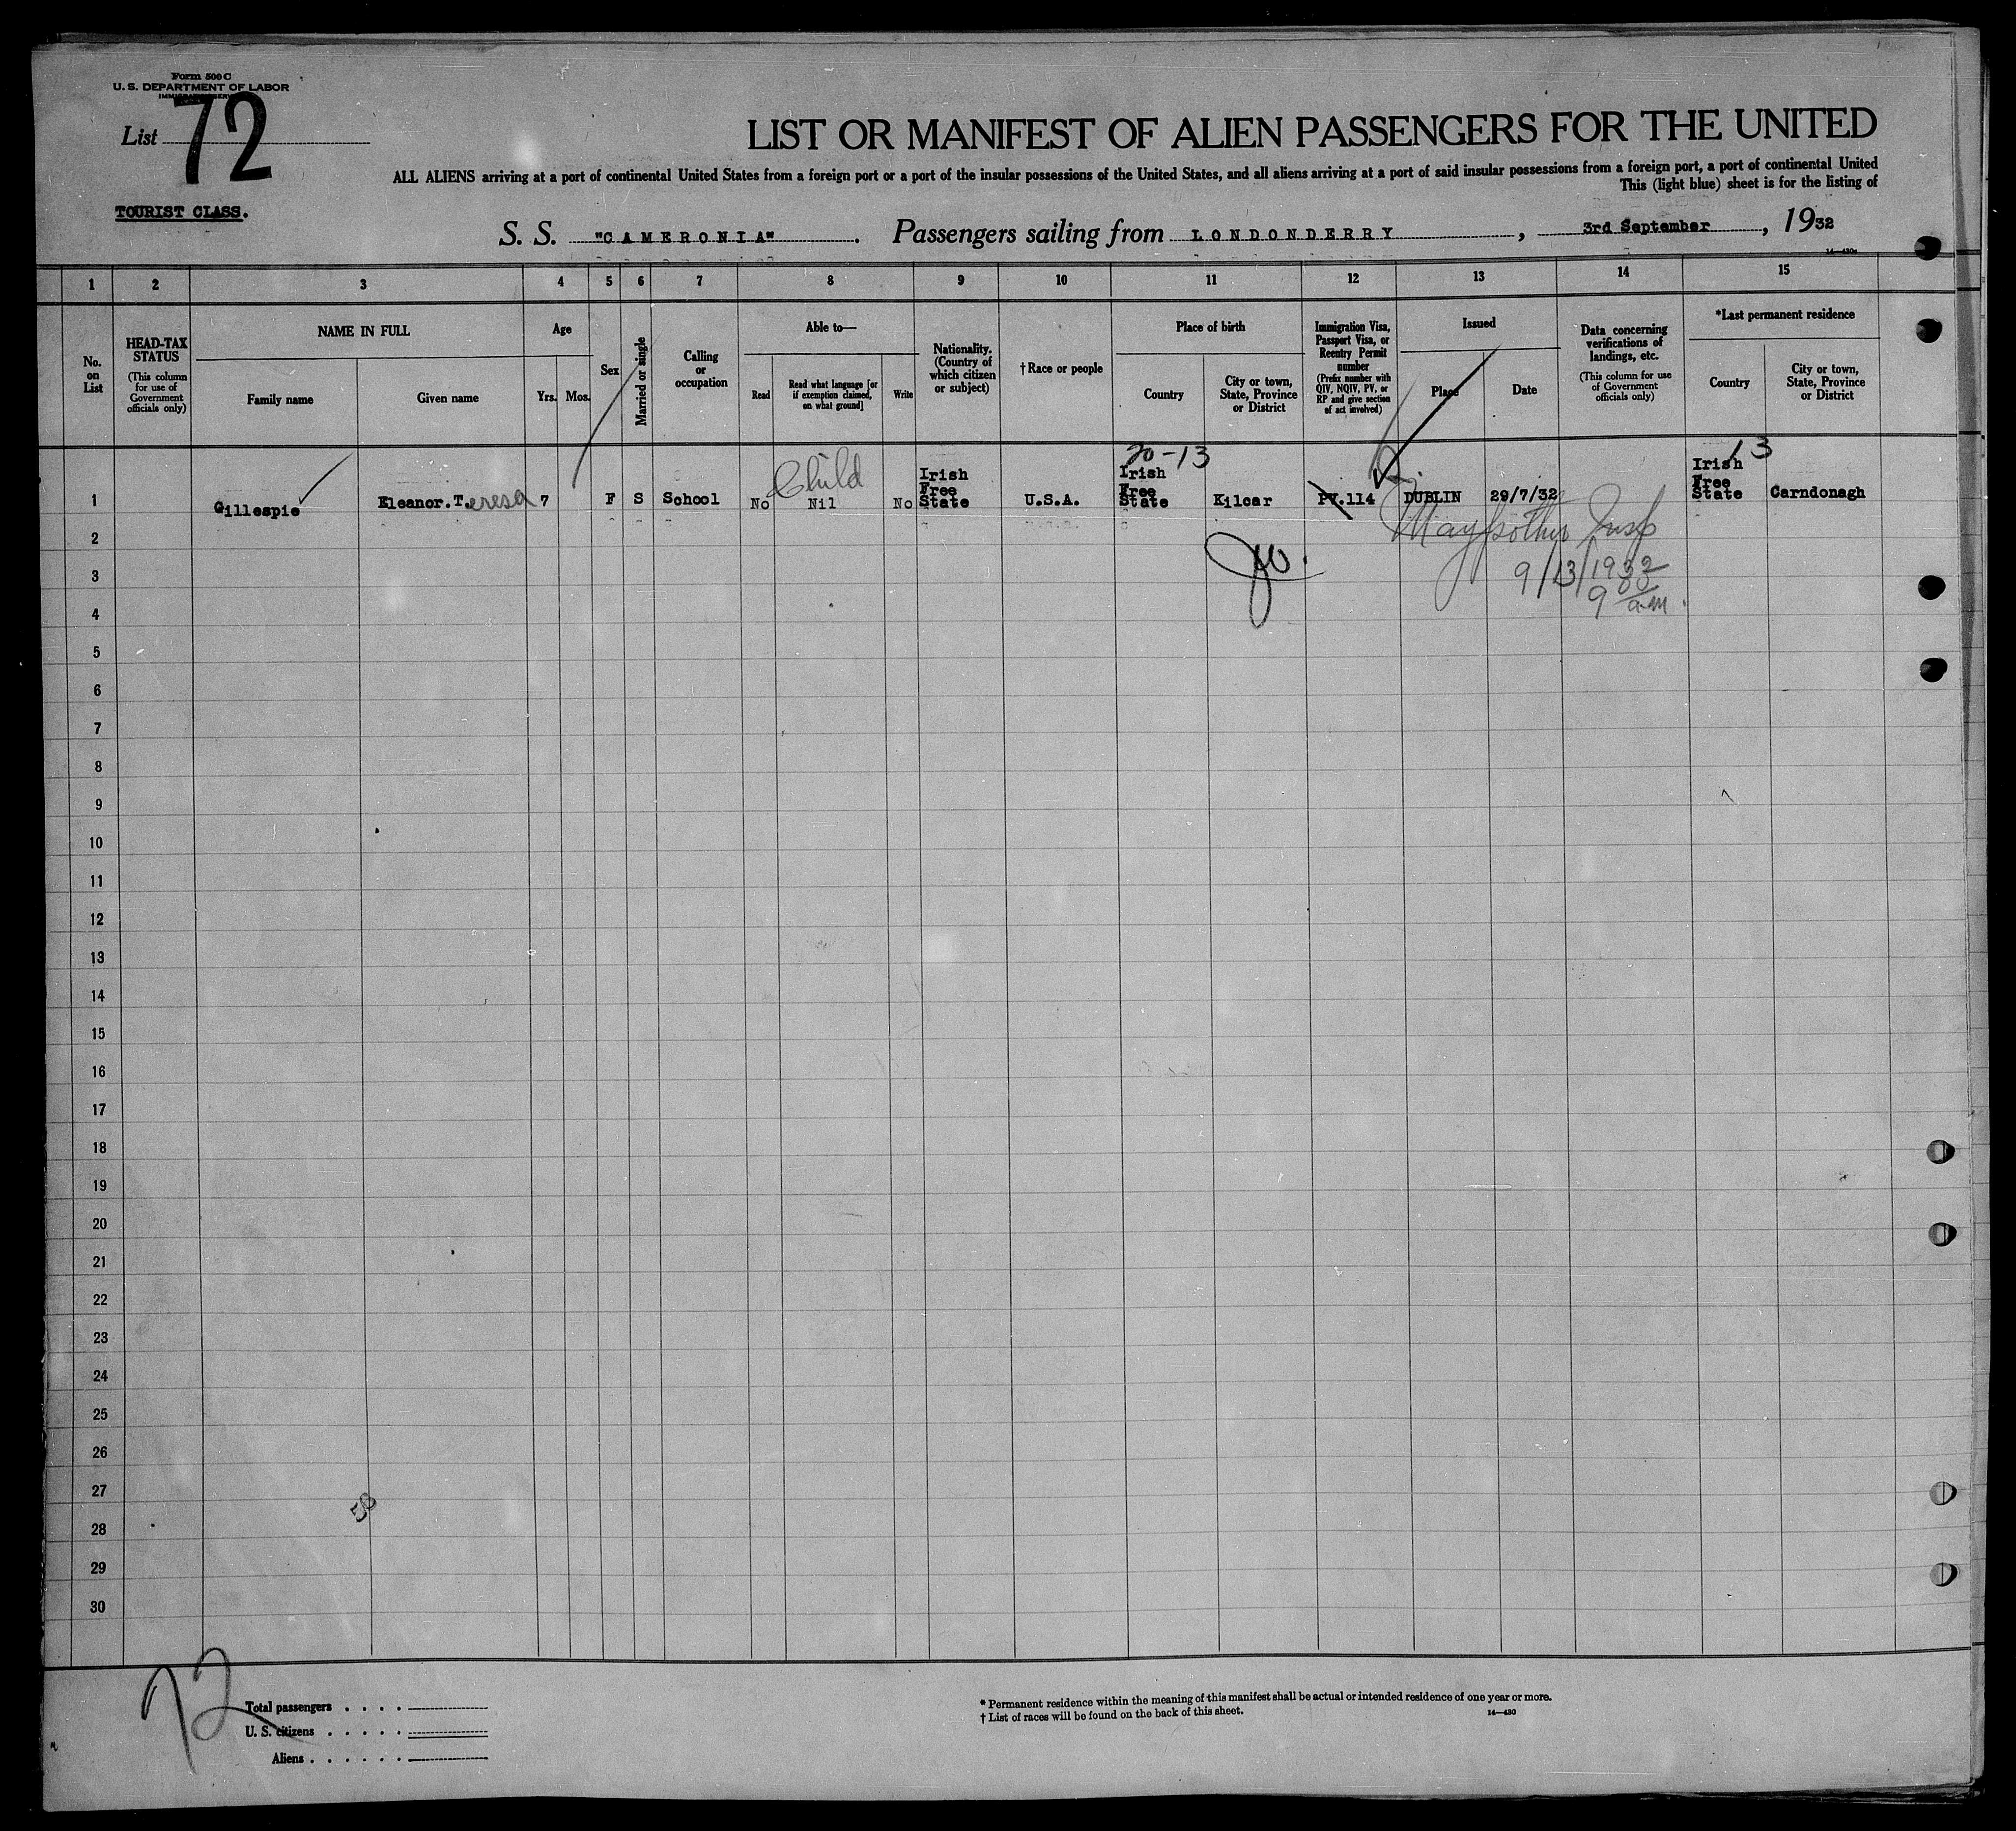 Form 500 C
U. S. DEPARTMENT OF LABOR
List 72
LIST OR MANIFEST OF ALIEN PASSENGERS FOR THE UNITED
ALL ALIENS arriving at a port of continental United States from a foreign port or a port of the insular possessions of the United States, and all aliens arriving at a port of said insular possessions from a foreign port, a port of continental United
This (light blue) sheet is for the listing of
TOURIST CLASS.
S. S. "CAMERONIA". Passengers sailing from LONDONDERRY, 3rd September, 1932
1 2 3 4 5 6 7 8 9 10 11 12 13 14 15
No. on List
HEAD-TAX STATUS
(This column for use of Government officials only)
NAME IN FULL
Family name
Given name
Age
Yrs. Mos.
Sex
Married or single
Calling or occupation
Able to—
Read
Read what language [or if exemption claimed, on what ground]
Write
Nationality. (Country of which citizen or subject)
†Race or people
Place of birth
Country
City or town, State, Province or District
Immigration Visa, Passport Visa, or Reentry Permit number
(Prefix number with QIV, NQIV, PV, or RP and give section of act involved)
Issued
Place
Date
Data concerning verifications of landings, etc.
(This column for use of Government officials only)
*Last permanent residence
Country
City or town, State, Province or District
20-13
13
Child
1 Gillespie Eleanor.Teresa 7 F S School No Nil No Irish Free State U.S.A. Irish Free State Kilcar PV.114 DUBLIN 29/7/32 Irish Free State Carndonagh
2
3 9/13/1932
4 9 00 a.m.
5
6
7
8
9
10
11
12
13
14
15
16
17
18
19
20
21
22
23
24
25
26
27
58
28
29
30
72
Total passengers . . . .
U. S. citizens . . . . .
Aliens . . . . . .
* Permanent residence within the meaning of this manifest shall be actual or intended residence of one year or more.
† List of races will be found on the back of this sheet.
14—430